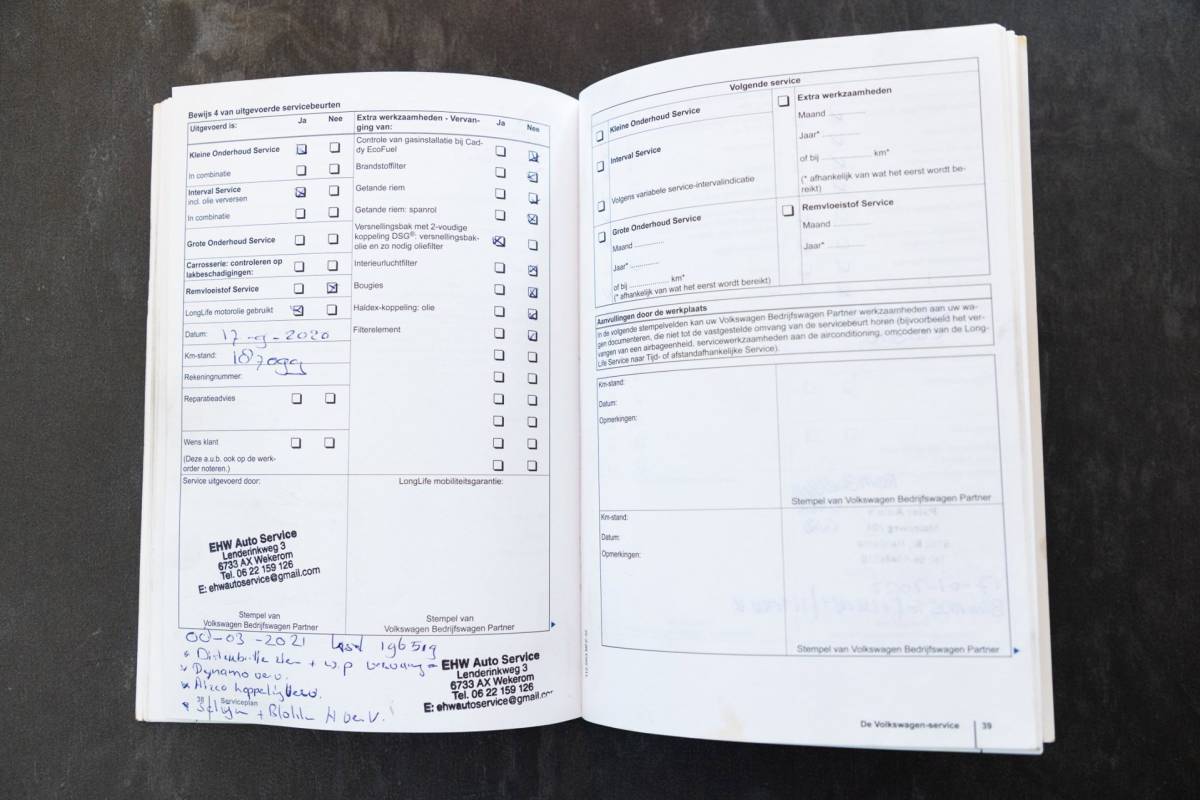 Bewijs 4 van uitgevoerde servicebeurten
Uitgevoerd is: Ja Nee
Kleine Onderhoud Service
In combinatie
Interval Service
incl. olie verversen
In combinatie
Grote Onderhoud Service
Carrosserie: controleren op
lakbeschadigingen:
Remvloeistof Service
LongLife motorolie gebruikt
Datum: 2020
Km-stand: 187099
Rekeningnummer:
Reparatieadvies
Wens klant
(Deze a.u.b. ook op de werk-
order noteren.)
Extra werkzaamheden - Vervan-
ging van: Ja Nee
Controle van gasinstallatie bij Cad-
dy EcoFuel
Brandstoffilter
Getande riem
Getande riem: spanrol
Versnellingsbak met 2-voudige
koppeling DSG®: versnellingsbak-
olie en zo nodig oliefilter
Interieurluchtfilter
Bougies
Haldex-koppeling: olie
Filterelement
Service uitgevoerd door:
EHW Auto Service
Lenderinkweg 3
6733 AX Wekerom
Tel. 06 22 159 126
E: ehwautoservice@gmail.com
Stempel van
Volkswagen Bedrijfswagen Partner
LongLife mobiliteitsgarantie:
Stempel van
Volkswagen Bedrijfswagen Partner
-03-2021 196519
+ w.p
Dynamo
Airco
EHW Auto Service
Lenderinkweg 3
6733 AX Wekerom
Tel. 06 22 159 126
E: ehwautoservice@gmail.com
38 Serviceplan
Volgende service
Kleine Onderhoud Service
Interval Service
Volgens variabele service-intervalindicatie
Grote Onderhoud Service
Maand ............
Jaar* ............
of bij ................ km*
(* afhankelijk van wat het eerst wordt bereikt)
Extra werkzaamheden
Maand ............
Jaar* ............
of bij ................ km*
(* afhankelijk van wat het eerst wordt be-
reikt)
Remvloeistof Service
Maand ............
Jaar* ............
Aanvullingen door de werkplaats
In de volgende stempelvelden kan uw Volkswagen Bedrijfswagen Partner werkzaamheden aan uw wa-
gen documenteren, die niet tot de vastgestelde omvang van de servicebeurt horen (bijvoorbeeld het ver-
vangen van een airbageenheid, servicewerkzaamheden aan de airconditioning, omcoderen van de Long-
Life Service naar Tijd- of afstandafhankelijke Service).
Km-stand:
Datum:
Opmerkingen:
Stempel van Volkswagen Bedrijfswagen Partner
Km-stand:
Datum:
Opmerkingen:
Stempel van Volkswagen Bedrijfswagen Partner
De Volkswagen-service 39